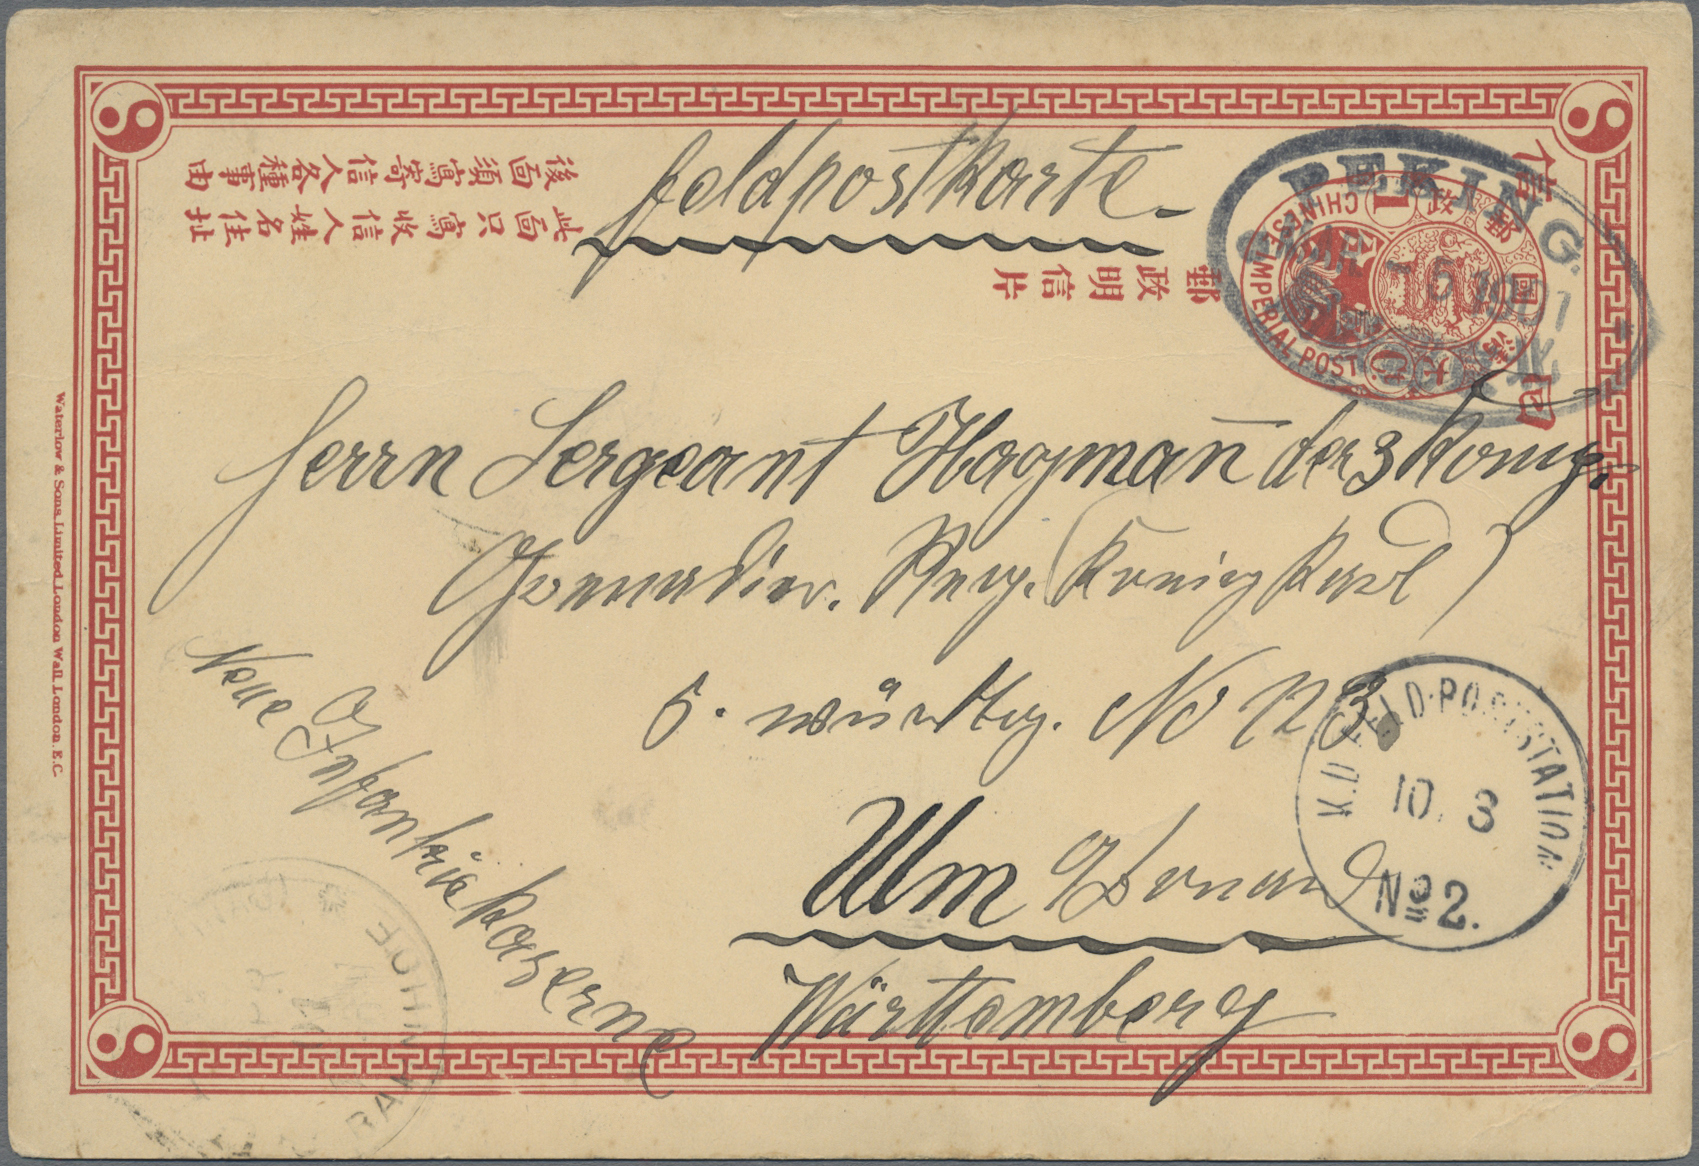 Feldpostkarte.
後面須寫寄信人各種事由
此面只寫收信人姓名住址
郵政明信片
大清國郵政
CHINESE IMPERIAL POST
PEKING.
MAR - 5 1901
北
Herrn Sergeant Hagmann der 3 König.
Grenadier. Reg. (König Karl)
5. württbg. No 123
Ulm a/Donau
Württemberg
Neue Infantrie Kaserne
K.D. FELD-POSTSTATION
10. 3
No 2.
BAHNHOF
Waterlow & Sons Limited. London Wall. London. E.C.